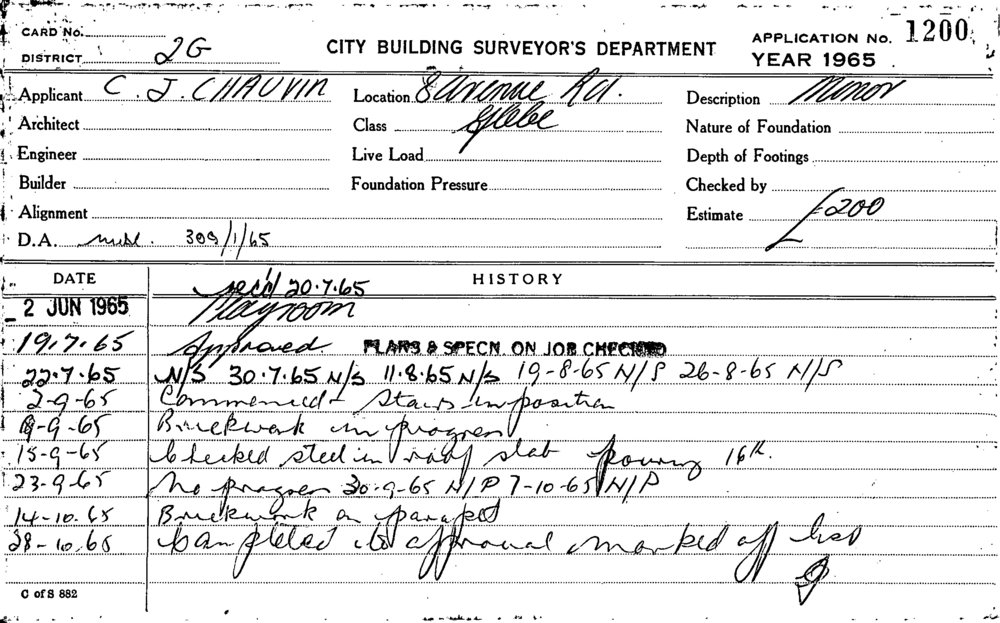 CARD No.
DISTRICT 2G
CITY BUILDING SURVEYOR'S DEPARTMENT
APPLICATION No. 1200
YEAR 1965
Applicant C. J. CHAUVIN
Location 8 Avenue Rd.
Description Minor
Architect
Class Glebe
Nature of Foundation
Engineer
Live Load
Depth of Footings
Builder
Foundation Pressure
Checked by
Alignment
Estimate £200
D.A. 309/1/65
DATE HISTORY
rec'd 20.7.65
2 JUN 1965 Playroom
19.7.65 Approved. PLANS & SPECN. ON JOB CHECKED
22.7.65 N/S 30.7.65 N/S 11.8.65 N/S 19-8-65 N/S 26-8-65 N/S
2-9-65 Commenced - Stairs in position
9-9-65 Brickwork in progress
15-9-65 Checked steel in roof slab pouring 16th.
23-9-65 No progress 30-9-65 N/P 7-10-65 N/P
14-10.65 Brickwork on parapet
28-10.65 Completed to approval marked off list
C of S 882